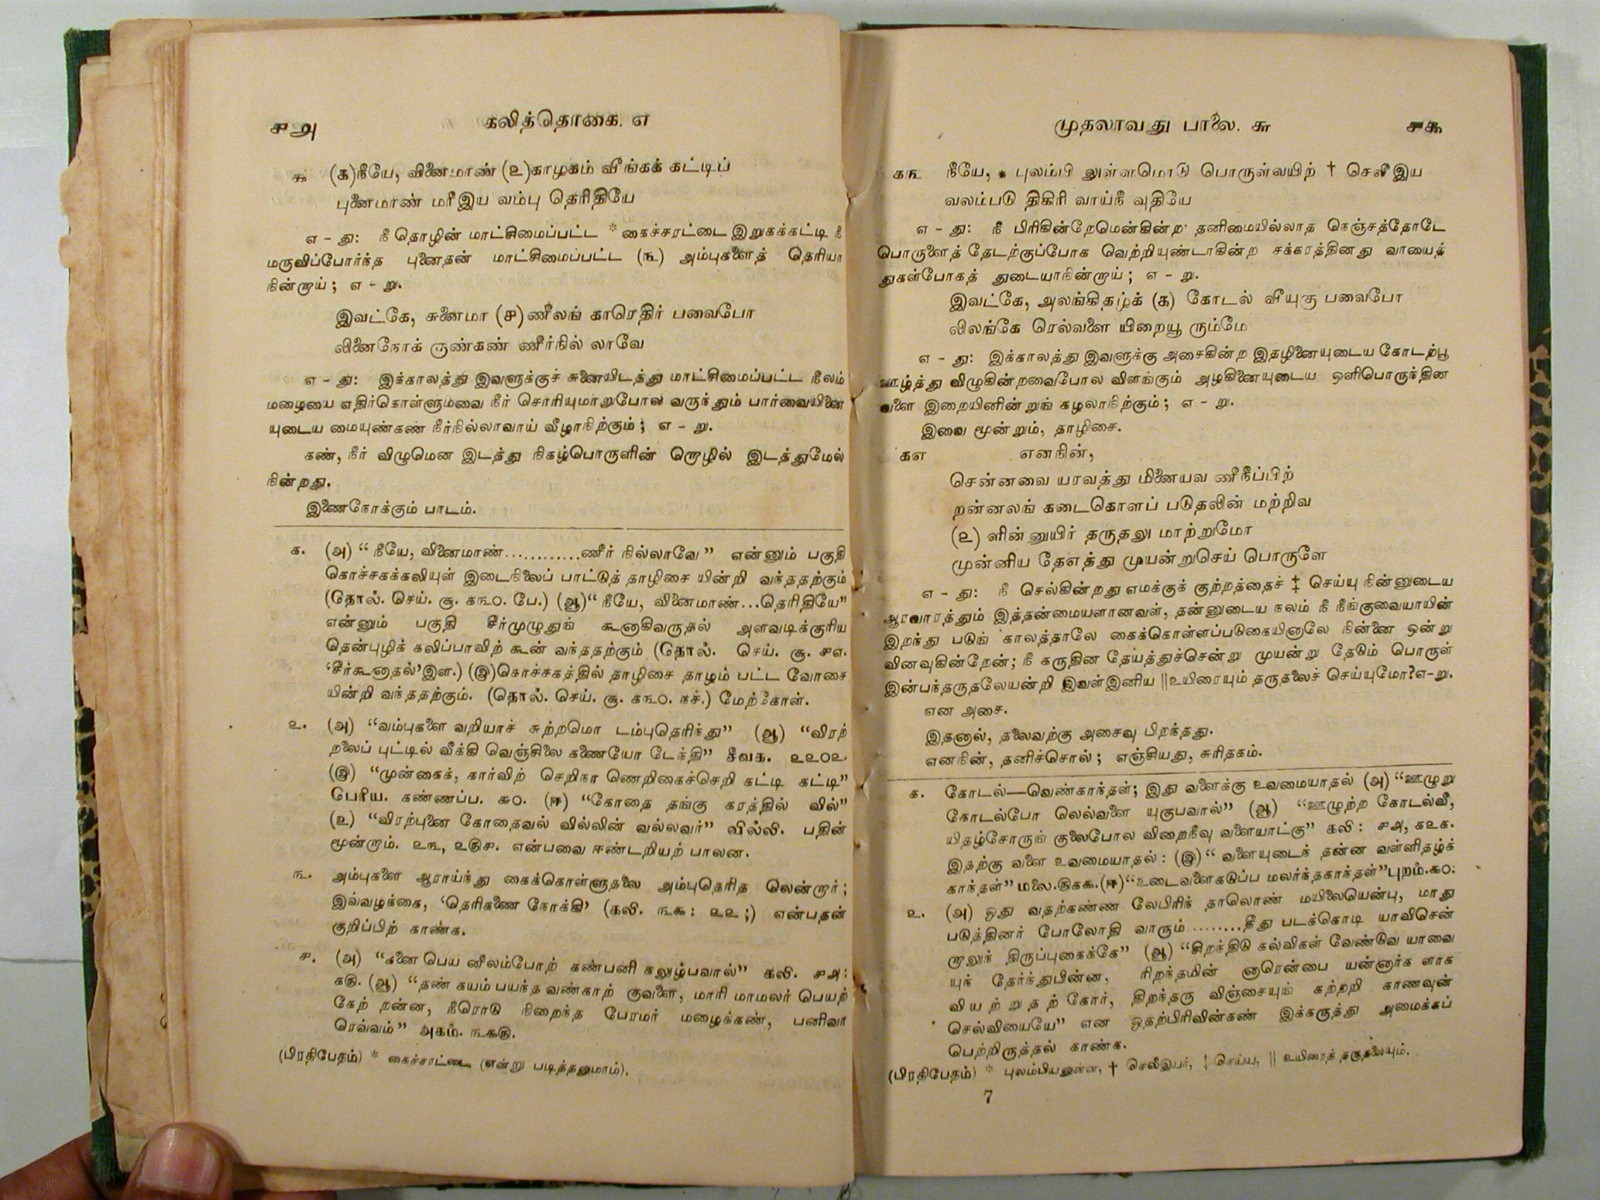 ௪௮
கலித்தொகை. எ
௯ (க)நீயே, வினைமாண் (உ)காழகம் வீங்கக் கட்டிப்
புனைமாண் மரீஇய வம்பு தெரிதியே
எ - து: நீ தொழின் மாட்சிமைப்பட்ட * கைச்சரட்டை இறுகக்கட்டி நீ
மருவிப்போர்ந்த புனைதன் மாட்சிமைப்பட்ட (௩) அம்புகளைத் தெரியா
நின்றாய்; எ - று.
இவட்கே, சுனைமா (௪)ணீலங் காரெதிர் பவைபோ
லினைநோக் குண்கண் ணீர்நில் லாவே
எ - து: இக்காலத்து இவளுக்குச் சுனையிடத்து மாட்சிமைப்பட்ட நீலம்
மழையை எதிர்கொள்ளுமவை நீர் சொரியுமாறுபோல வருந்தும் பார்வையினை
யுடைய மையுண்கண் நீர்நில்லாவாய் வீழாநிற்கும்; எ - று.
கண், நீர் விழுமென இடத்து நிகழ்பொருளின் றொழில் இடத்துமேல்
நின்றது.
இணைநோக்கும் பாடம்.
௧. (அ) “நீயே, வினைமாண்............ணீர் நில்லாவே” என்னும் பகுதி
கொச்சகக்கலியுள் இடைநிலைப் பாட்டுத் தாழிசை யின்றி வந்ததற்கும்
(தொல். செய். சூ. ௧௩௦. பே.) (ஆ)“நீயே, வினைமாண்...தெரிதியே”
என்னும் பகுதி சீர்முழுதுங் கூனாகிவருதல் அளவடிக்குரிய
தென்புழிக் கலிப்பாவிற் கூன் வந்ததற்கும் (தொல். செய். சூ. ௪௭.
‘சீர்கூனாதல்’இள.) (இ)கொச்சகத்தில் தாழிசை தாழம் பட்ட வோசை
யின்றி வந்ததற்கும். (தொல். செய். சூ. ௧௩௦. நச்.) மேற்கோள்.
௨. (அ) “வம்புகளை வறியாச் சுற்றமொ டம்புதெரிந்து” (ஆ) “விரற்
றலைப் புட்டில் வீக்கி வெஞ்சிலை கணையோ டேந்தி” சீவக. ௨௨௦௨.
(இ) “முன்கைக், கார்விற் செறிநா ணெறிகைச்செறி கட்டி கட்டி”
பெரிய. கண்ணப்ப. ௬௦. (ஈ) “கோதை தங்கு கரத்தில் வில்”
(உ) “விரற்புனை கோதைவல் வில்லின் வல்லவர்” வில்லி. பதின்
மூன்றும். ௨௩, ௨௫௪. என்பவை ஈண்டறியற் பாலன.
௩. அம்புகளை ஆராய்ந்து கைக்கொள்ளுதலை அம்புதெரித லென்றார்;
இவ்வழக்கை, ‘தெரிகணை நோக்கி’ (கலி. ௩௯: ௨௨;) என்பதன்
குறிப்பிற் காண்க.
௪. (அ) “கனை பெய னீலம்போற் கண்பனி கலுழ்பவால்” கலி. ௪௮:
௧௫. (ஆ) “தண் கயம் பயந்த வண்காற் குவளை, மாரி மாமலர் பெயற்
கேற் றன்ன, நீரொடு நிறைந்த பேரமர் மழைக்கண், பனிவா
ரெவ்வம்” அகம். ௩௯௫.
(பிரதிபேதம்) * கைச்சாட்டை (என்று படித்தனுமாம்).
முதலாவது பாலை. ௬
௪௯
௧௩ நீயே, * புலம்பி லுள்ளமொடு பொருள்வயிற் † செலீஇய
வலம்படு திகிரி வாய்நீ வுதியே
எ - து: நீ பிரிகின்றேமென்கின்ற தனிமையில்லாத நெஞ்சத்தோடே
பொருளைத் தேடற்குப்போக வெற்றியுண்டாகின்ற சக்கரத்தினது வாயைத்
துகள்போகத் துடையாநின்றாய்; எ - று.
இவட்கே, அலங்கிதழ்க் (௧) கோடல் வீயுகு பவைபோ
லிலங்கே ரெல்வளை யிறையூ ரும்மே
எ - து: இக்காலத்து இவளுக்கு அசைகின்ற இதழினையுடைய கோடற்பூ
ஊழ்த்து விழுகின்றவைபோல விளங்கும் அழகினையுடைய ஒளிபொருந்தின
வளை இறையினின்றுங் கழலாநிற்கும்; எ - று.
இவை மூன்றும், தாழிசை.
௧௭ எனநின்,
சென்னவை யரவத்து மினையவ ணீநீப்பிற்
றன்னலங் கடைகொளப் படுதலின் மற்றிவ
(௨) ளின்னுயிர் தருதலு மாற்றுமோ
முன்னிய தேஎத்து முயன்றுசெய் பொருளே
எ - து: நீ செல்கின்றது எமக்குக் குற்றத்தைச் ‡ செய்யு நின்னுடைய
ஆரவாரத்தும் இத்தன்மையளானவள், தன்னுடைய நலம் நீ நீங்குவையாயின்
இறந்து படுங் காலத்தாலே கைக்கொள்ளப்படுகையினாலே நின்னை ஒன்று
வினவுகின்றேன்; நீ கருதின தேயத்துச்சென்று முயன்று தேடும் பொருள்
இன்பந்தருதலேயன்றி இவள்இனிய ||உயிரையும் தருதலைச் செய்யுமோ?எ-று.
என அசை.
இதனால், தலைவற்கு அசைவு பிறந்தது.
எனநின், தனிச்சொல்; எஞ்சியது, சுரிதகம்.
௧. கோடல்—வெண்காந்தள்; இது வளைக்கு உவமையாதல் (அ) “ஊழுறு
கோடல்போ லெல்வளை யுகுபவால்” (ஆ) “ஊழுற்ற கோடல்வீ,
யிதழ்சோருங் குலைபோல விறைநீவு வளையாட்கு” கலி: ௪௮, ௧௨௧.
இதற்கு வளை உவமையாதல்: (இ)“வளையுடைந் தன்ன வள்ளிதழ்க்
காந்தள்” மலை.௫௧௯.(ஈ)“உடைவளைகடுப்ப மலர்ந்தகாந்தள்”புறம்.௯௦:
௨. (அ) ஒது வதற்கண்ண லேபிரிந் தாலொண் மயிலையென்பு, மாது
படுத்தினர் போலோதி வாரும் ........தீது படக்கொடி யாவிசென்
றாலுந் திருப்புகைக்கே” (ஆ) “திறந்திடு கல்விகள் வேண்டுவ யாவை
யுந் தேர்ந்துபின்ன, ரிறந்தமின் னாரென்பை யன்னார்க ளாக
வியற்றுதற்கோர், திறந்தரு விஞ்சையுங் கற்றறி காணவுன்
செல்வியையே” என ஓதற்பிரிவின்கண் இக்கருத்து அமைக்கப்
பெற்றிருத்தல் காண்க.
(பிரதிபேதம்) * புலம்பியலுள்ள, † செலீஇயர், ‡ செய்ய, || உயிரைத் தருதலையும்.
7